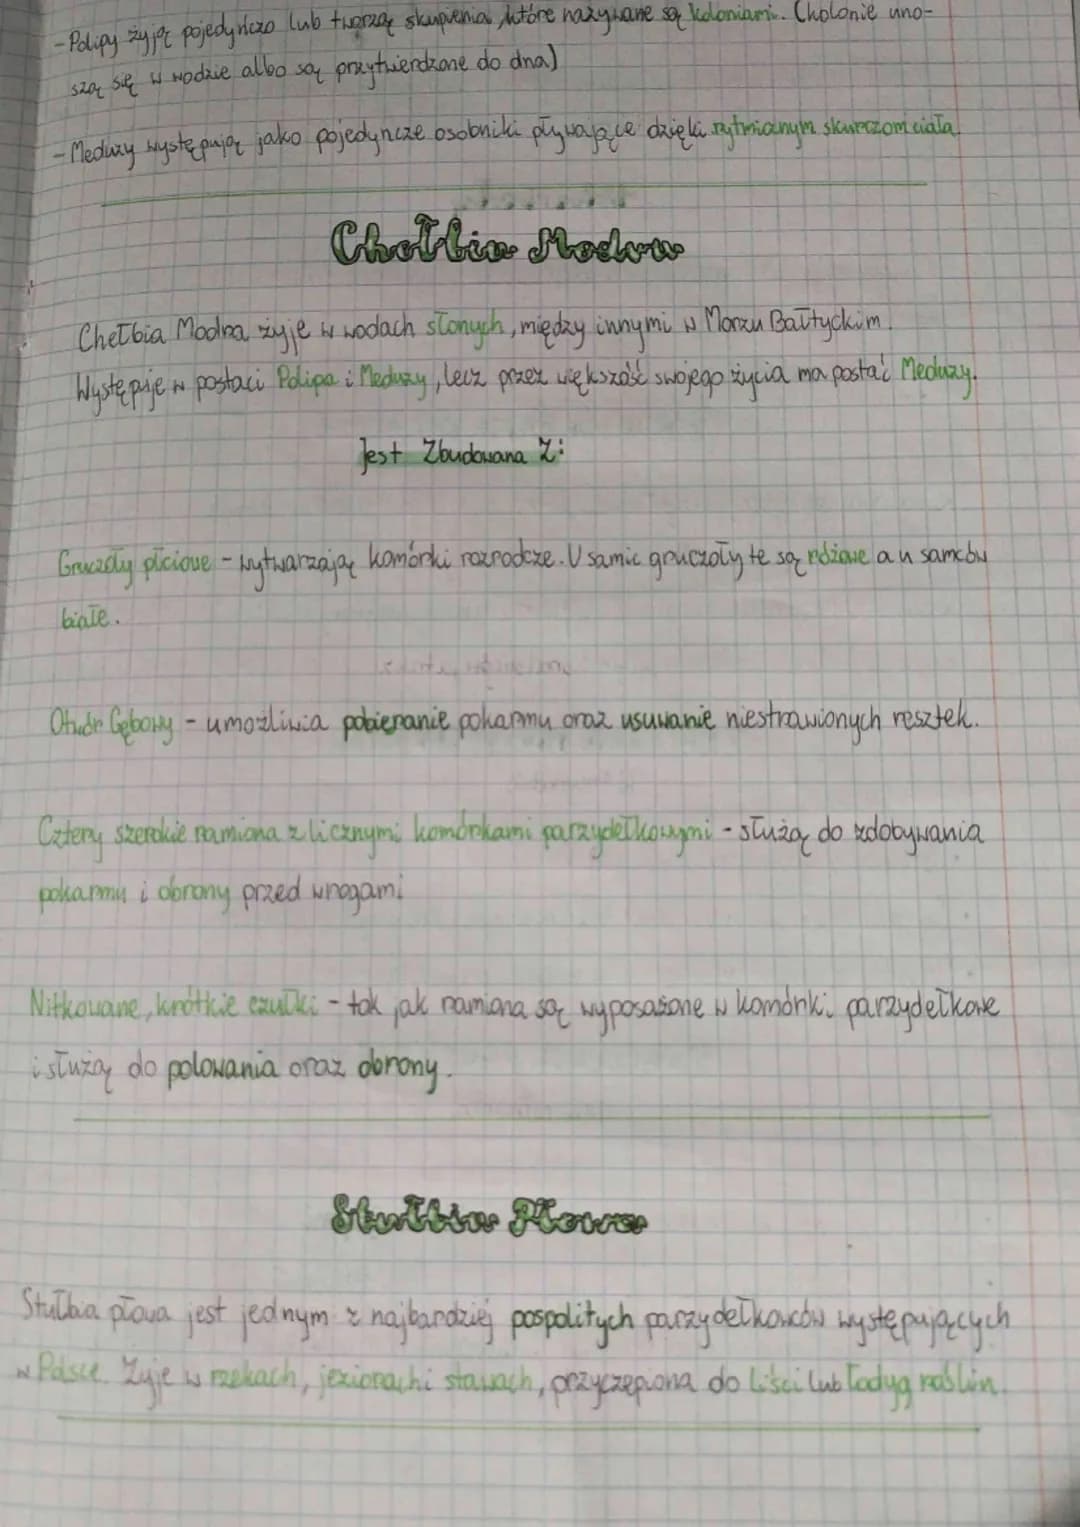 - Polipy żyją pojedyńczo lub tworzą skupienia, które nazywane są koloniami. (kolonie uno-
szą się w wodzie albo są przytwierdzone do dna)
- Meduzy występują jako pojedyncze osobniki pływające dzięki rytmicznym skurczom ciała.
Chełbia Modra
Chełbia Modra żyje w wodach słonych, między innymi w Morzu Bałtyckim.
Występuje w postaci Polipa i Meduzy, lecz przez większość swojego życia ma postać Meduzy.
Jest Zbudowana Z:
Gruczoły płciowe - wytwarzają komórki rozrodcze. U samic gruczoły te są różowe a u samców
białe.
Otwór Gębowy - umożliwia pobieranie pokarmu oraz usuwanie niestrawionych resztek.
Cztery szerokie ramiona z licznymi komórkami parzydełkowymi - służą do zdobywania
pokarmu i obrony przed wrogami
Nitkowane, krótkie czułki - tak jak ramiona są wyposażone w komórki parzydełkowe
i służą do polowania oraz obrony.
Stułbia Płowa
Stułbia płowa jest jednym z najbardziej pospolitych parzydełkowców występujących
w Polsce. Żyje w rzekach, jeziorach i stawach, przyczepiona do liści lub łodyg roślin.